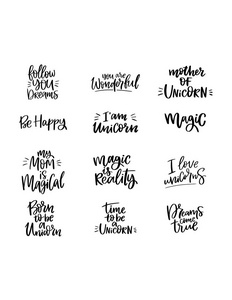 follow
YOU
DREAMS
you are
Wonderful
mother
OF
UNICORN
Be Happy
I'am
UNICORN
MAGIC
my
MOM
IS
MAGICAL
MAGIC
IS
REALITY
I love
unicorns
Born
to be
a
UNICORN
Time
to be
a
UNICORN
Dreams
come
true